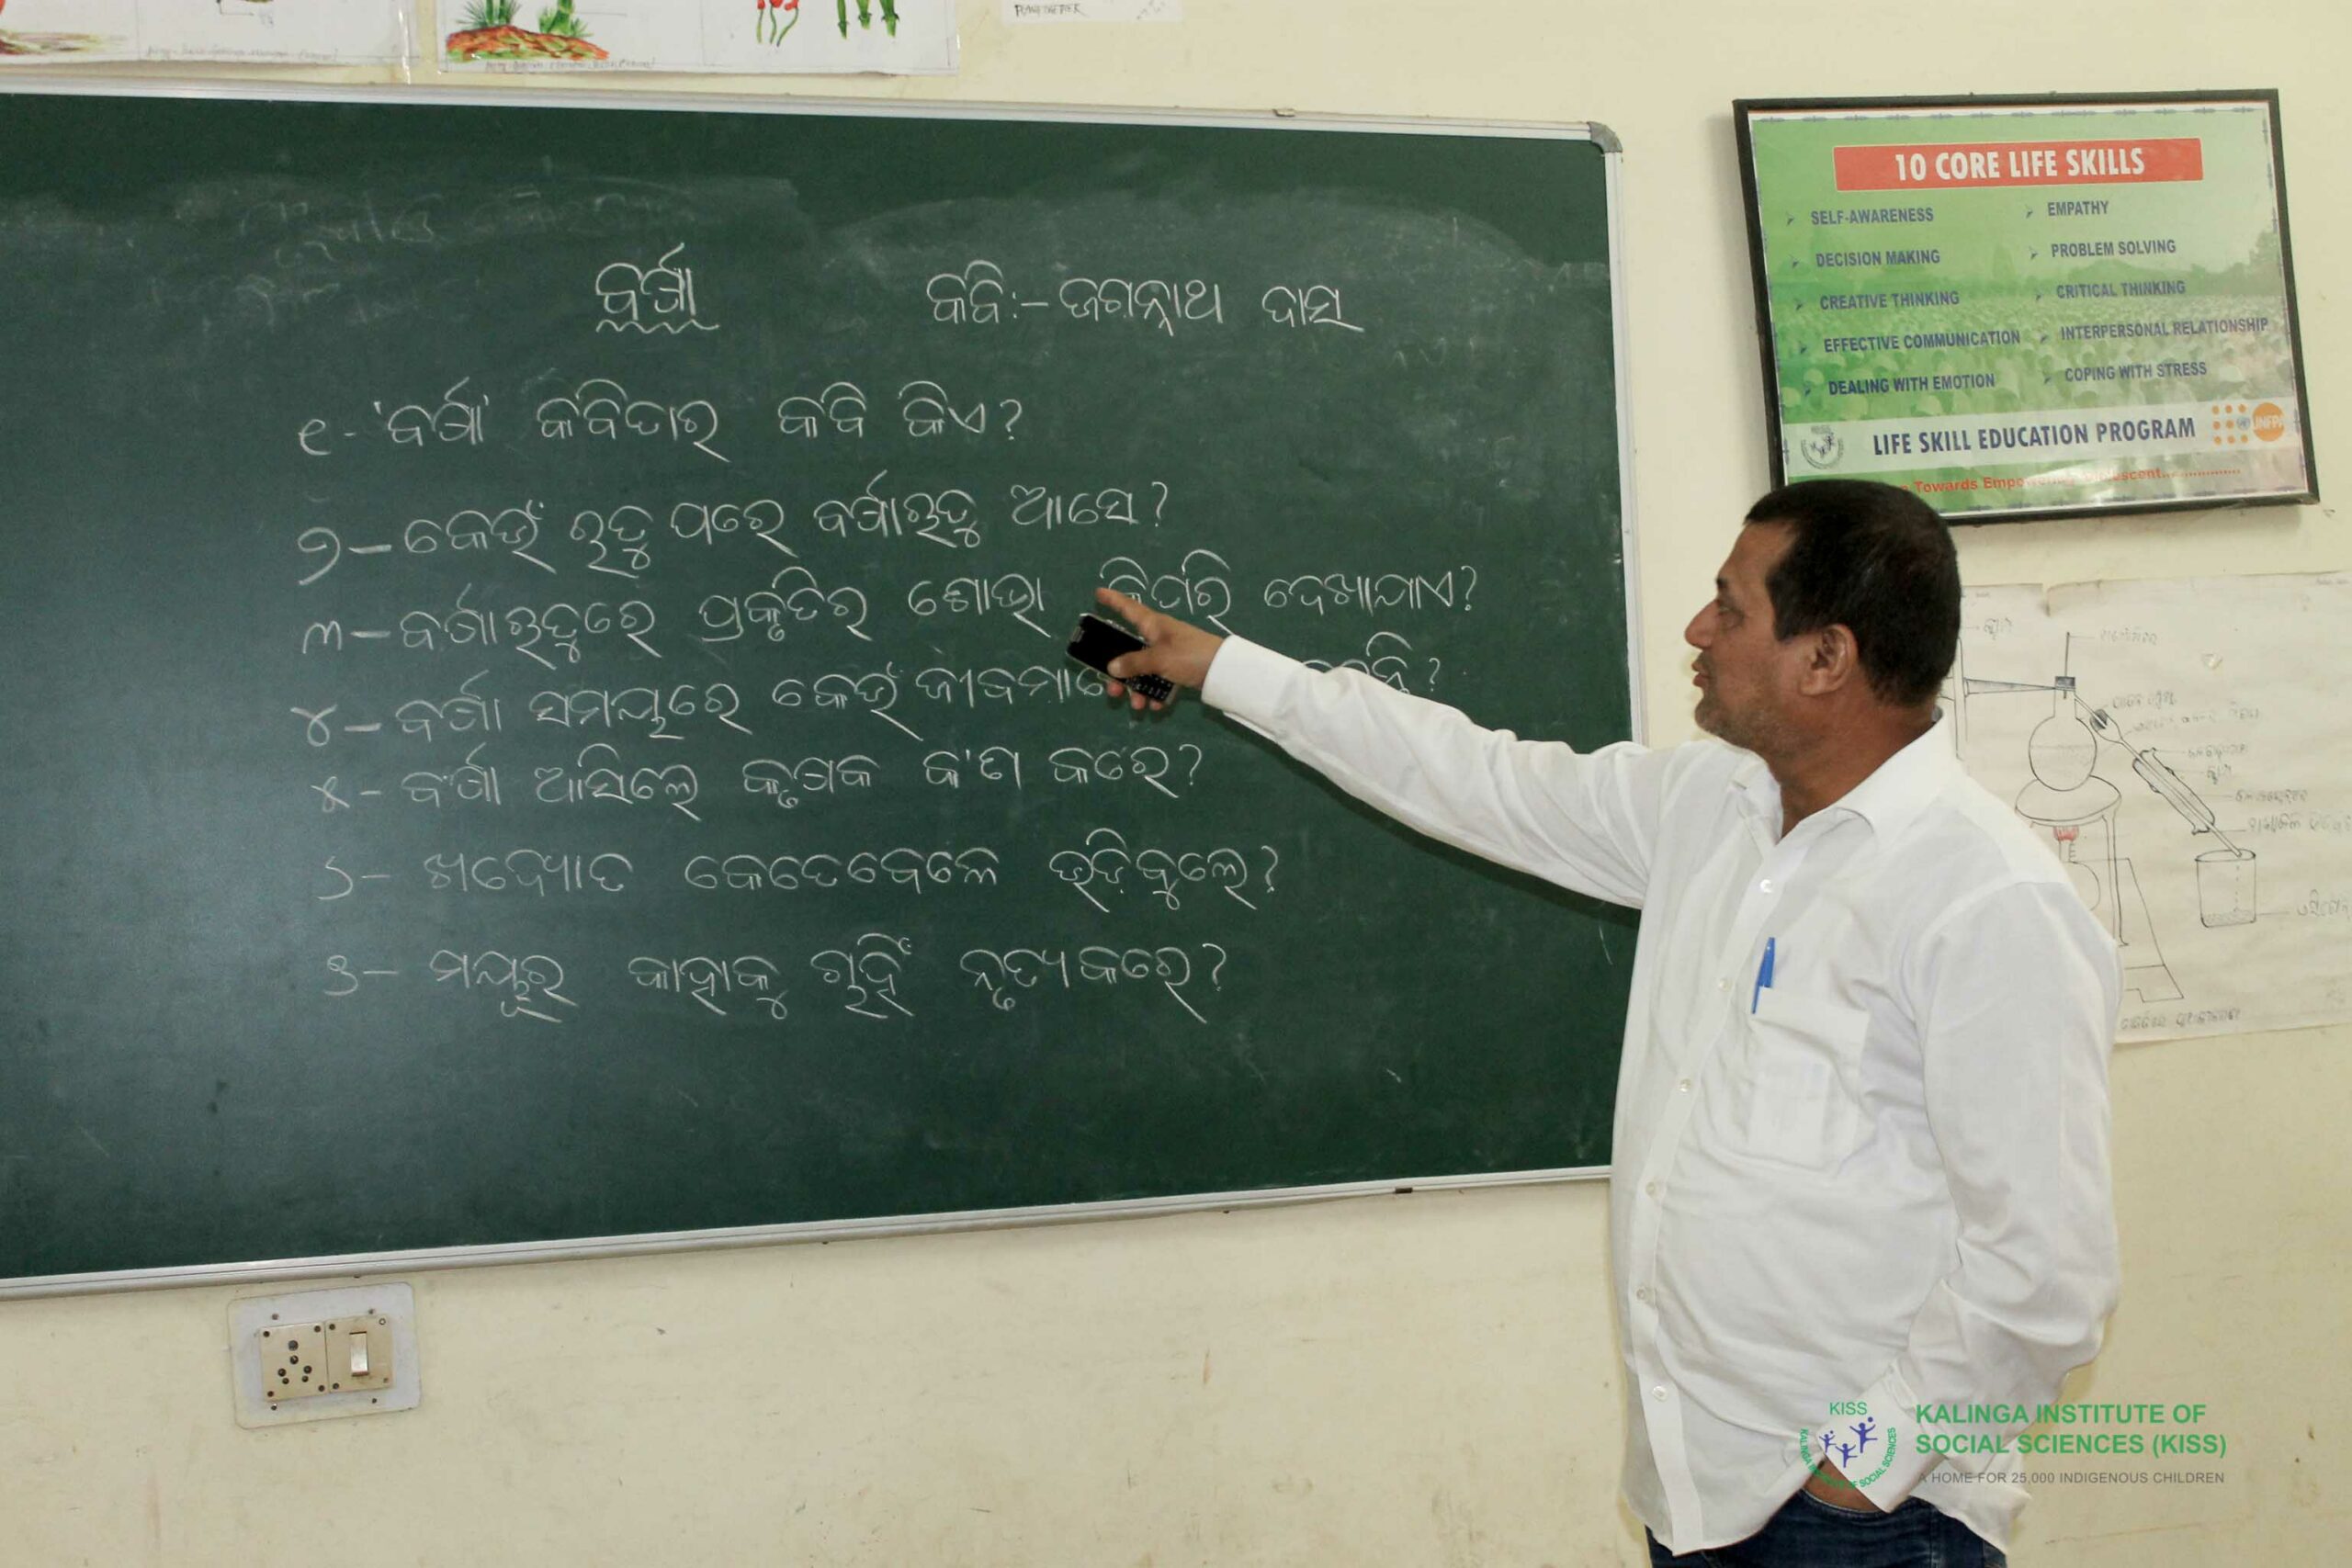 ବର୍ଷା କବି:- ଜଗନ୍ନାଥ ଦାସ
୧- 'ବର୍ଷା' କବିତାର କବି କିଏ?
୨- କେଉଁ ଋତୁ ପରେ ବର୍ଷାଋତୁ ଆସେ?
୩- ବର୍ଷାଋତୁରେ ପ୍ରକୃତିର ଶୋଭା କିପରି ଦେଖାଯାଏ?
୪- ବର୍ଷା ସମୟରେ କେଉଁ
୫- ବର୍ଷା ଆସିଲେ କୃଷକ କ'ଣ କରେ?
୬- ଖଦ୍ୟୋତ କେତେବେଳେ ଉଡ଼ିବୁଲେ?
୭- ମୟୂର କାହାକୁ ଚାହିଁ ନୃତ୍ୟକରେ?
10 CORE LIFE SKILLS
SELF-AWARENESS EMPATHY
DECISION MAKING PROBLEM SOLVING
CREATIVE THINKING CRITICAL THINKING
EFFECTIVE COMMUNICATION INTERPERSONAL RELATIONSHIP
DEALING WITH EMOTION COPING WITH STRESS
LIFE SKILL EDUCATION PROGRAM UNFPA
Towards
KISS
KALINGA INSTITUTE OF
SOCIAL SCIENCES (KISS)
A HOME FOR 25,000 INDIGENOUS CHILDREN